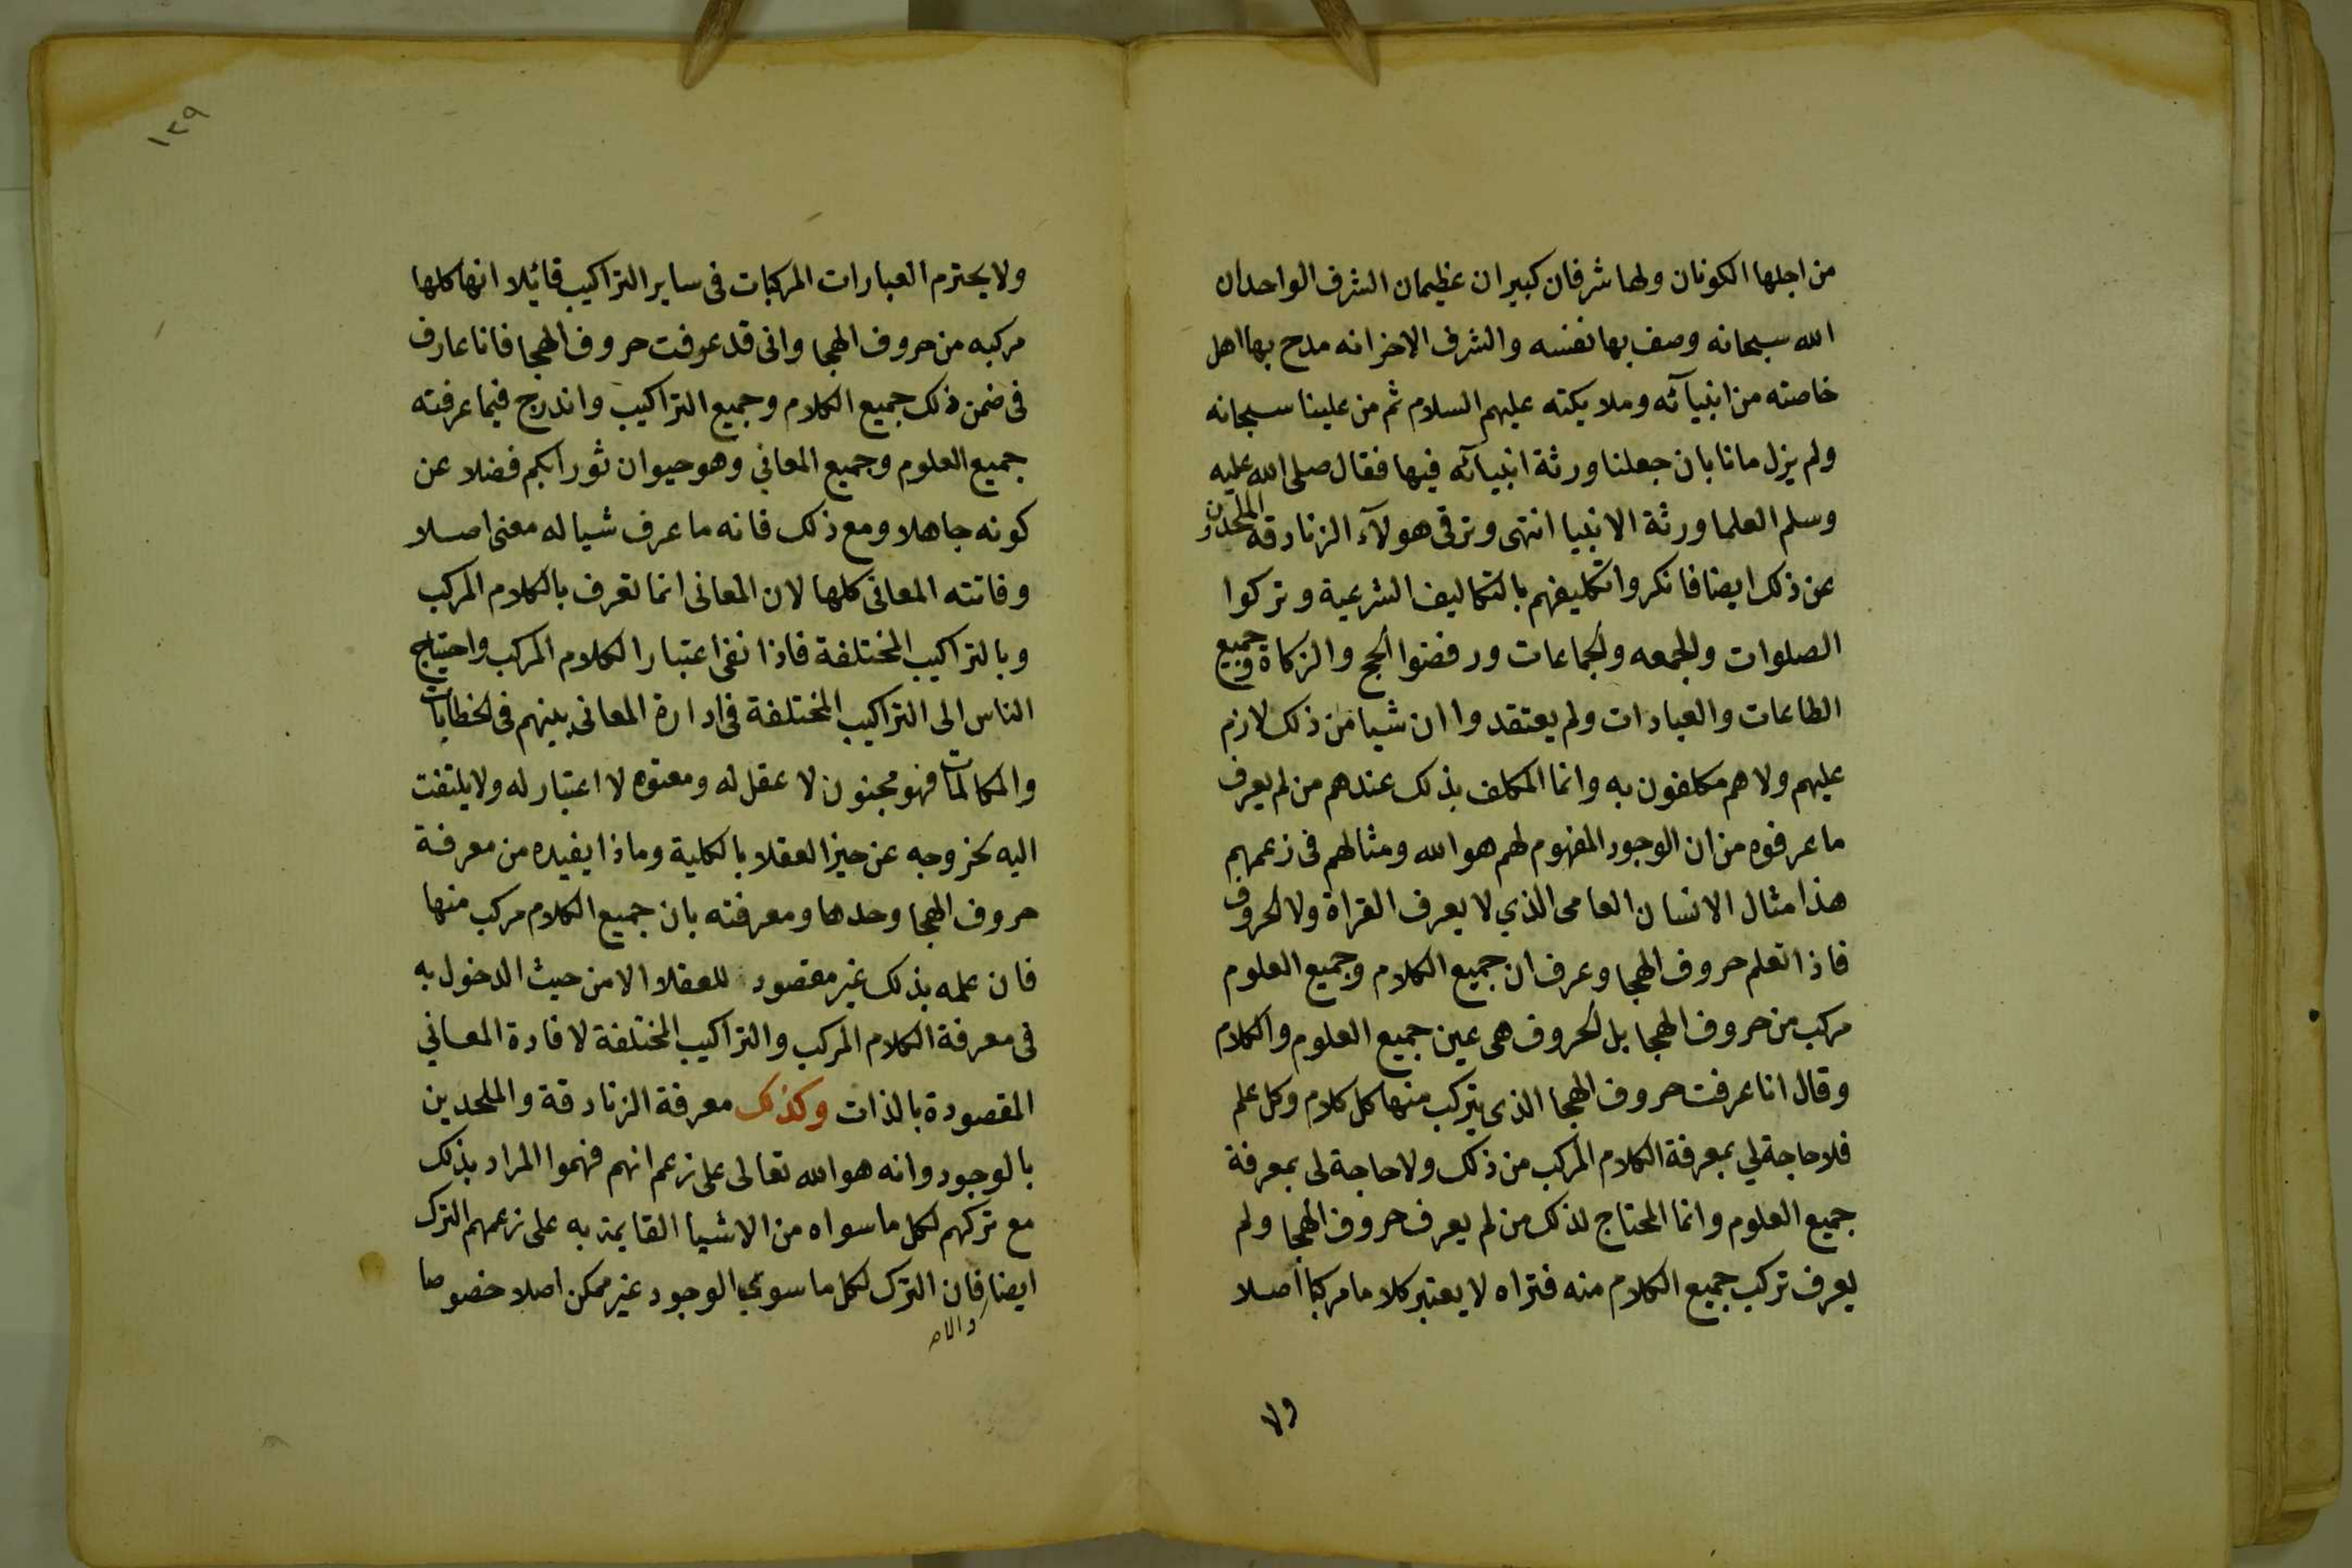 من اجلها الكونان ولها شرفان كبيران عظيمان الشرف الواحد ان
الله سبحانه وصف بها نفسه والشرف الاخر انه مدح بها اهل
خاصته من انبيآئه وملايكته عليهم السلام ثم من علينا سبحانه
ولم يزل مانا بان جعلنا ورثة انبيائه فيها فقال صلى الله عليه
وسلم العلما ورثة الانبيا انتهى وترقى هولآء الزنادقة الملحدون
عن ذلك ايضا فانكروا تكليفهم بالتكاليف الشرعية وتركوا
الصلوات والجمعه والجماعات ورفضوا الحج والزكاة وجميع
الطاعات والعبادات ولم يعتقدوا ان شيا من ذلك لازم
عليهم ولا هم مكلفون به وانما المكلف بذلك عندهم من لم يعرف
ما عرفوه من ان الوجود المفهوم لهم هو الله ومثالهم في زعمهم
هذا مثال الانسان العامى الذي لا يعرف القراة ولا الحروف
فاذا تعلم حروف الهجا وعرف ان جميع الكلام وجميع العلوم
مركب من حروف الهجا بل الحروف هى عين جميع العلوم والكلام
وقال انا عرفت حروف الهجا الذى يتركب منها كل كلام وكل علم
فلا حاجة لي بمعرفة الكلام المركب من ذلك ولا حاجة لى بمعرفة
جميع العلوم وانما المحتاج لذلك من لم يعرف حروف الهجا ولم
يعرف تركب جميع الكلام منه فتراه لا يعتبر كلاما مركبا اصلا
ولا
١٢٩
ولا يحترم العبارات المركبات فى ساير التراكيب قائيلا انها كلها
مركبه من حروف الهجا وانى قد عرفت حروف الهجا فانا عارف
فى ضمن ذلك جميع الكلام وجميع التراكيب واندرج فيما عرفته
جميع العلوم وجميع المعاني وهو حيوان ثور ابكم فضلا عن
كونه جاهلا ومع ذلك فانه ما عرف شيا له معنى اصلا
وفاتته المعانى كلها لان المعانى انما تعرف بالكلام المركب
وبالتراكيب المختلفة فاذا نفى اعتبار الكلام المركب واحتياج
الناس الى التراكيب المختلفة فى ادارة المعانى بينهم فى الخطابات
والمكالمات فهو مجنون لا عقل له ومعتوه لا اعتبار له ولا يلتفت
اليه لخروجه عن حيز العقلا بالكلية وماذا يفيده من معرفة
حروف الهجا وحدها ومعرفته بان جميع الكلام مركب منها
فان علمه بذلك غير مقصود للعقلا الا من حيث الدخول به
فى معرفة الكلام المركب والتراكيب المختلفة لافادة المعاني
المقصودة بالذات وكذلك معرفة الزنادقة والملحدين
بالوجود وانه هو الله تعالى على زعم انهم فهموا المراد بذلك
مع تركهم لكل ما سواه من الاشيا القايمة به على زعمهم الترك
ايضا فان الترك لكل ما سوى الوجود غير ممكن اصلا خصوصا